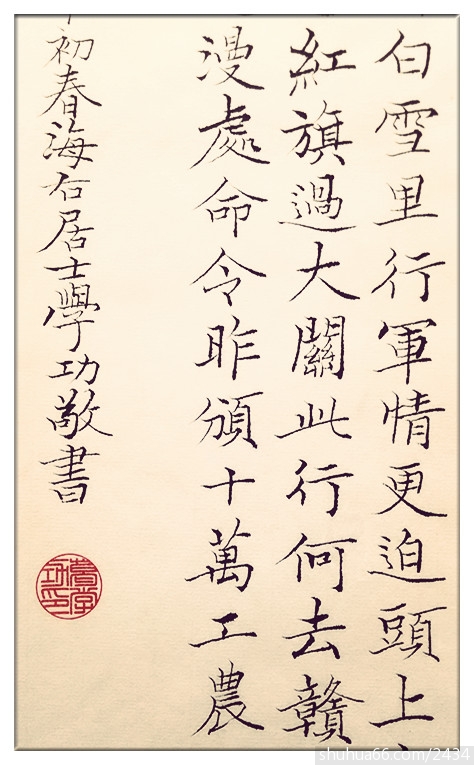 白雪里行軍情更迫頭上
紅旗過大關此行何去贛
漫處命令昨頒十萬工農
初春海右居士學功敬書
shuhua66.com/2434